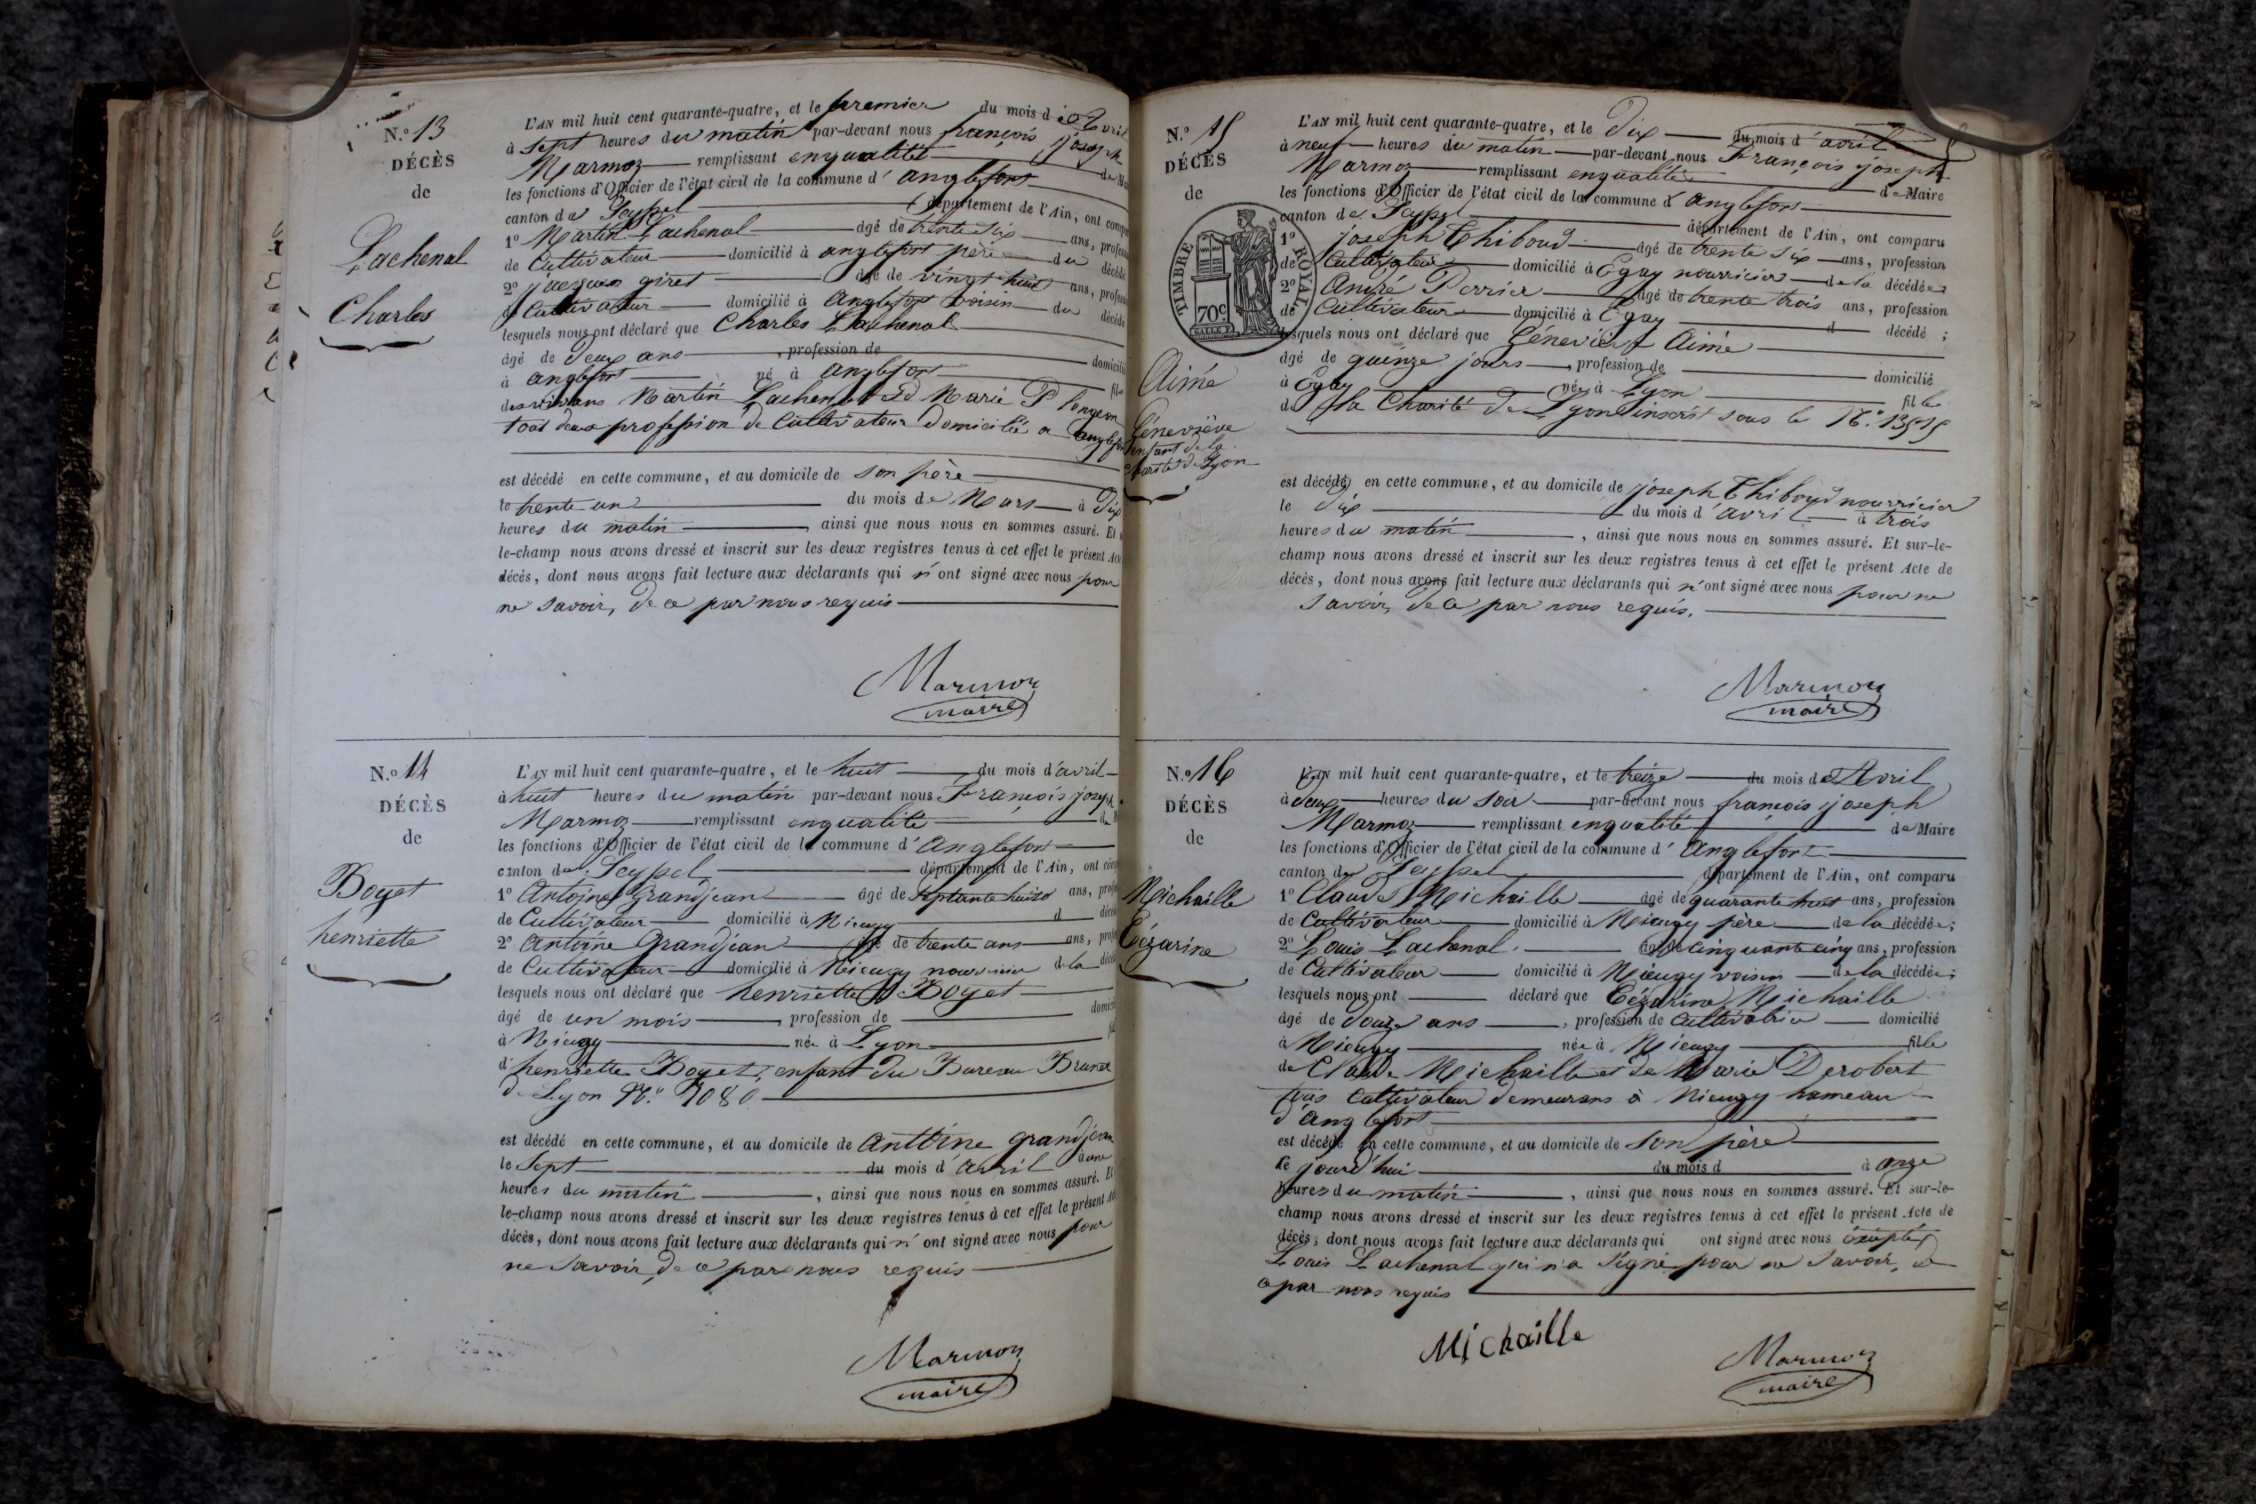 N.o 13
DÉCÈS
de
Lachenal
Charles
L'AN mil huit cent quarante-quatre, et le premier du mois d'Avril
à Sept heures du matin par-devant nous françois joseph
Marmoz remplissant en qualité de
les fonctions d'Officier de l'état civil de la commune d'anglefort
canton de Seyssel département de l'Ain, ont
1o Martin Lachenal âgé de trente six ans,
de Cultivateur domicilié à anglefort père du décédé
2o giret âgé de vingt huit ans,
Cultivateur domicilié à anglefort voisin du décédé
lesquels nous ont déclaré que Charles Lachenal
âgé de deux ans , profession de
à anglefort né à anglefort fils
Martin Lachenal et de Marie
tous deux profession de Cultivateur domicilié a
est décédé en cette commune, et au domicile de son père
le trente un du mois de Mars à dix
heures du matin , ainsi que nous nous en sommes assuré. Et
le-champ nous avons dressé et inscrit sur les deux registres tenus à cet effet le présent
décès, dont nous avons fait lecture aux déclarants qui n'ont signé avec nous pour
ne savoir, de ce par nous requis
Marmoz
maire
N.o 14
DÉCÈS
de
Boget
henriette
L'AN mil huit cent quarante-quatre, et le huit du mois d'avril
à huit heures du matin par-devant nous François joseph
Marmoz remplissant en qualité
les fonctions d'Officier de l'état civil de la commune d'Anglefort
canton de Seyssel département de l'Ain, ont
1o Antoine Grandjean âgé de septante ans,
de Cultivateur domicilié à Mieugy d
2o Antoine Grandjean âgé de trente ans ans,
de Cultivateur domicilié à Mieugy nourricier de la
lesquels nous ont déclaré que henriette Boget
âgé de un mois , profession de
à Mieugy née à Lyon
d'henriette Boget, enfant du Bureau
de Lyon No. 7080
est décédé en cette commune, et au domicile de antoine grandjean
le Sept du mois d'avril
heures du matin , ainsi que nous nous en sommes assuré. Et
le-champ nous avons dressé et inscrit sur les deux registres tenus à cet effet le présent
décès, dont nous avons fait lecture aux déclarants qui n'ont signé avec nous pour
ne savoir, de ce par nous requis
Marmoz
maire
N.o 15
DÉCÈS
de
TIMBRE ROYAL
70c.
Aimée
Géneviève
enfant de la
charité de Lyon
L'AN mil huit cent quarante-quatre, et le Dix du mois d'avril
à neuf heures du matin par-devant nous François joseph
Marmoz remplissant en qualité de Maire
les fonctions d'Officier de l'état civil de la commune d'anglefort
canton de Seyssel département de l'Ain, ont comparu
1o joseph Thiboud âgé de trente six ans, profession
de Cultivateur domicilié à Egay nourricier de la décédée
2o André Perrier âgé de trente trois ans, profession
de Cultivateur domicilié à Egay d décédé ;
lesquels nous ont déclaré que Géneviève Aimée
âgé de quinze jours , profession de domicilié
à Egay née à Lyon fille
de la Charité de Lyon inscrit sous le No. 1355
est décédée en cette commune, et au domicile de joseph Thiboud nourricier
le dix du mois d'avril à trois
heures du matin , ainsi que nous nous en sommes assuré. Et sur-le-
champ nous avons dressé et inscrit sur les deux registres tenus à cet effet le présent Acte de
décès, dont nous avons fait lecture aux déclarants qui n'ont signé avec nous pour ne
savoir, de ce par nous requis.
Marmoz
maire
N.o 16
DÉCÈS
de
Michaille
Cézarine
L'AN mil huit cent quarante-quatre, et le treize du mois d'Avril
à deux heures du soir par-devant nous françois joseph
Marmoz remplissant en qualité de Maire
les fonctions d'Officier de l'état civil de la commune d'Anglefort
canton de Seyssel département de l'Ain, ont comparu
1o Claude Michaille âgé de quarante huit ans, profession
de Cultivateur domicilié à Mieugy père de la décédée ;
2o Louis Lachenal âgé de cinquante cinq ans, profession
de Cultivateur domicilié à Mieugy voisin de la décédée ;
lesquels nous ont déclaré que Cézarine Michaille
âgé de douze ans , profession de Cultivatrice domicilié
à Mieugy née à Mieugy fille
de Claude Michaille et de Marie Derobert
Cultivateur demeurans à Mieugy hameau
d'anglefort
est décédé en cette commune, et au domicile de son père
le jourd'hui du mois d à onze
heures du matin , ainsi que nous nous en sommes assuré. Et sur-le-
champ nous avons dressé et inscrit sur les deux registres tenus à cet effet le présent Acte de
décès, dont nous avons fait lecture aux déclarants qui ont signé avec nous
Louis Lachenal qui n'a signé pour ne savoir, de
ce par nous requis
Michaille
Marmoz
maire